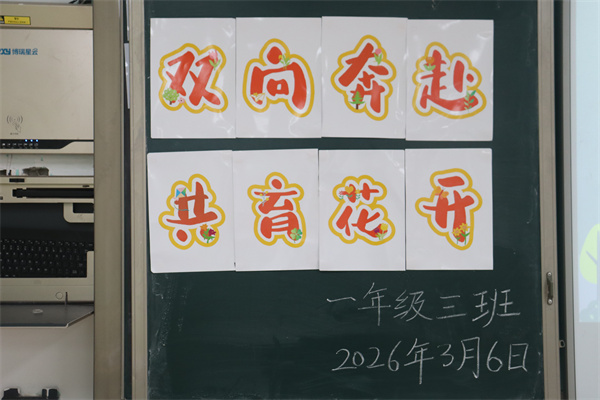 博瑞星云
双向奔赴
共育花开
一年级三班
2026年3月6日